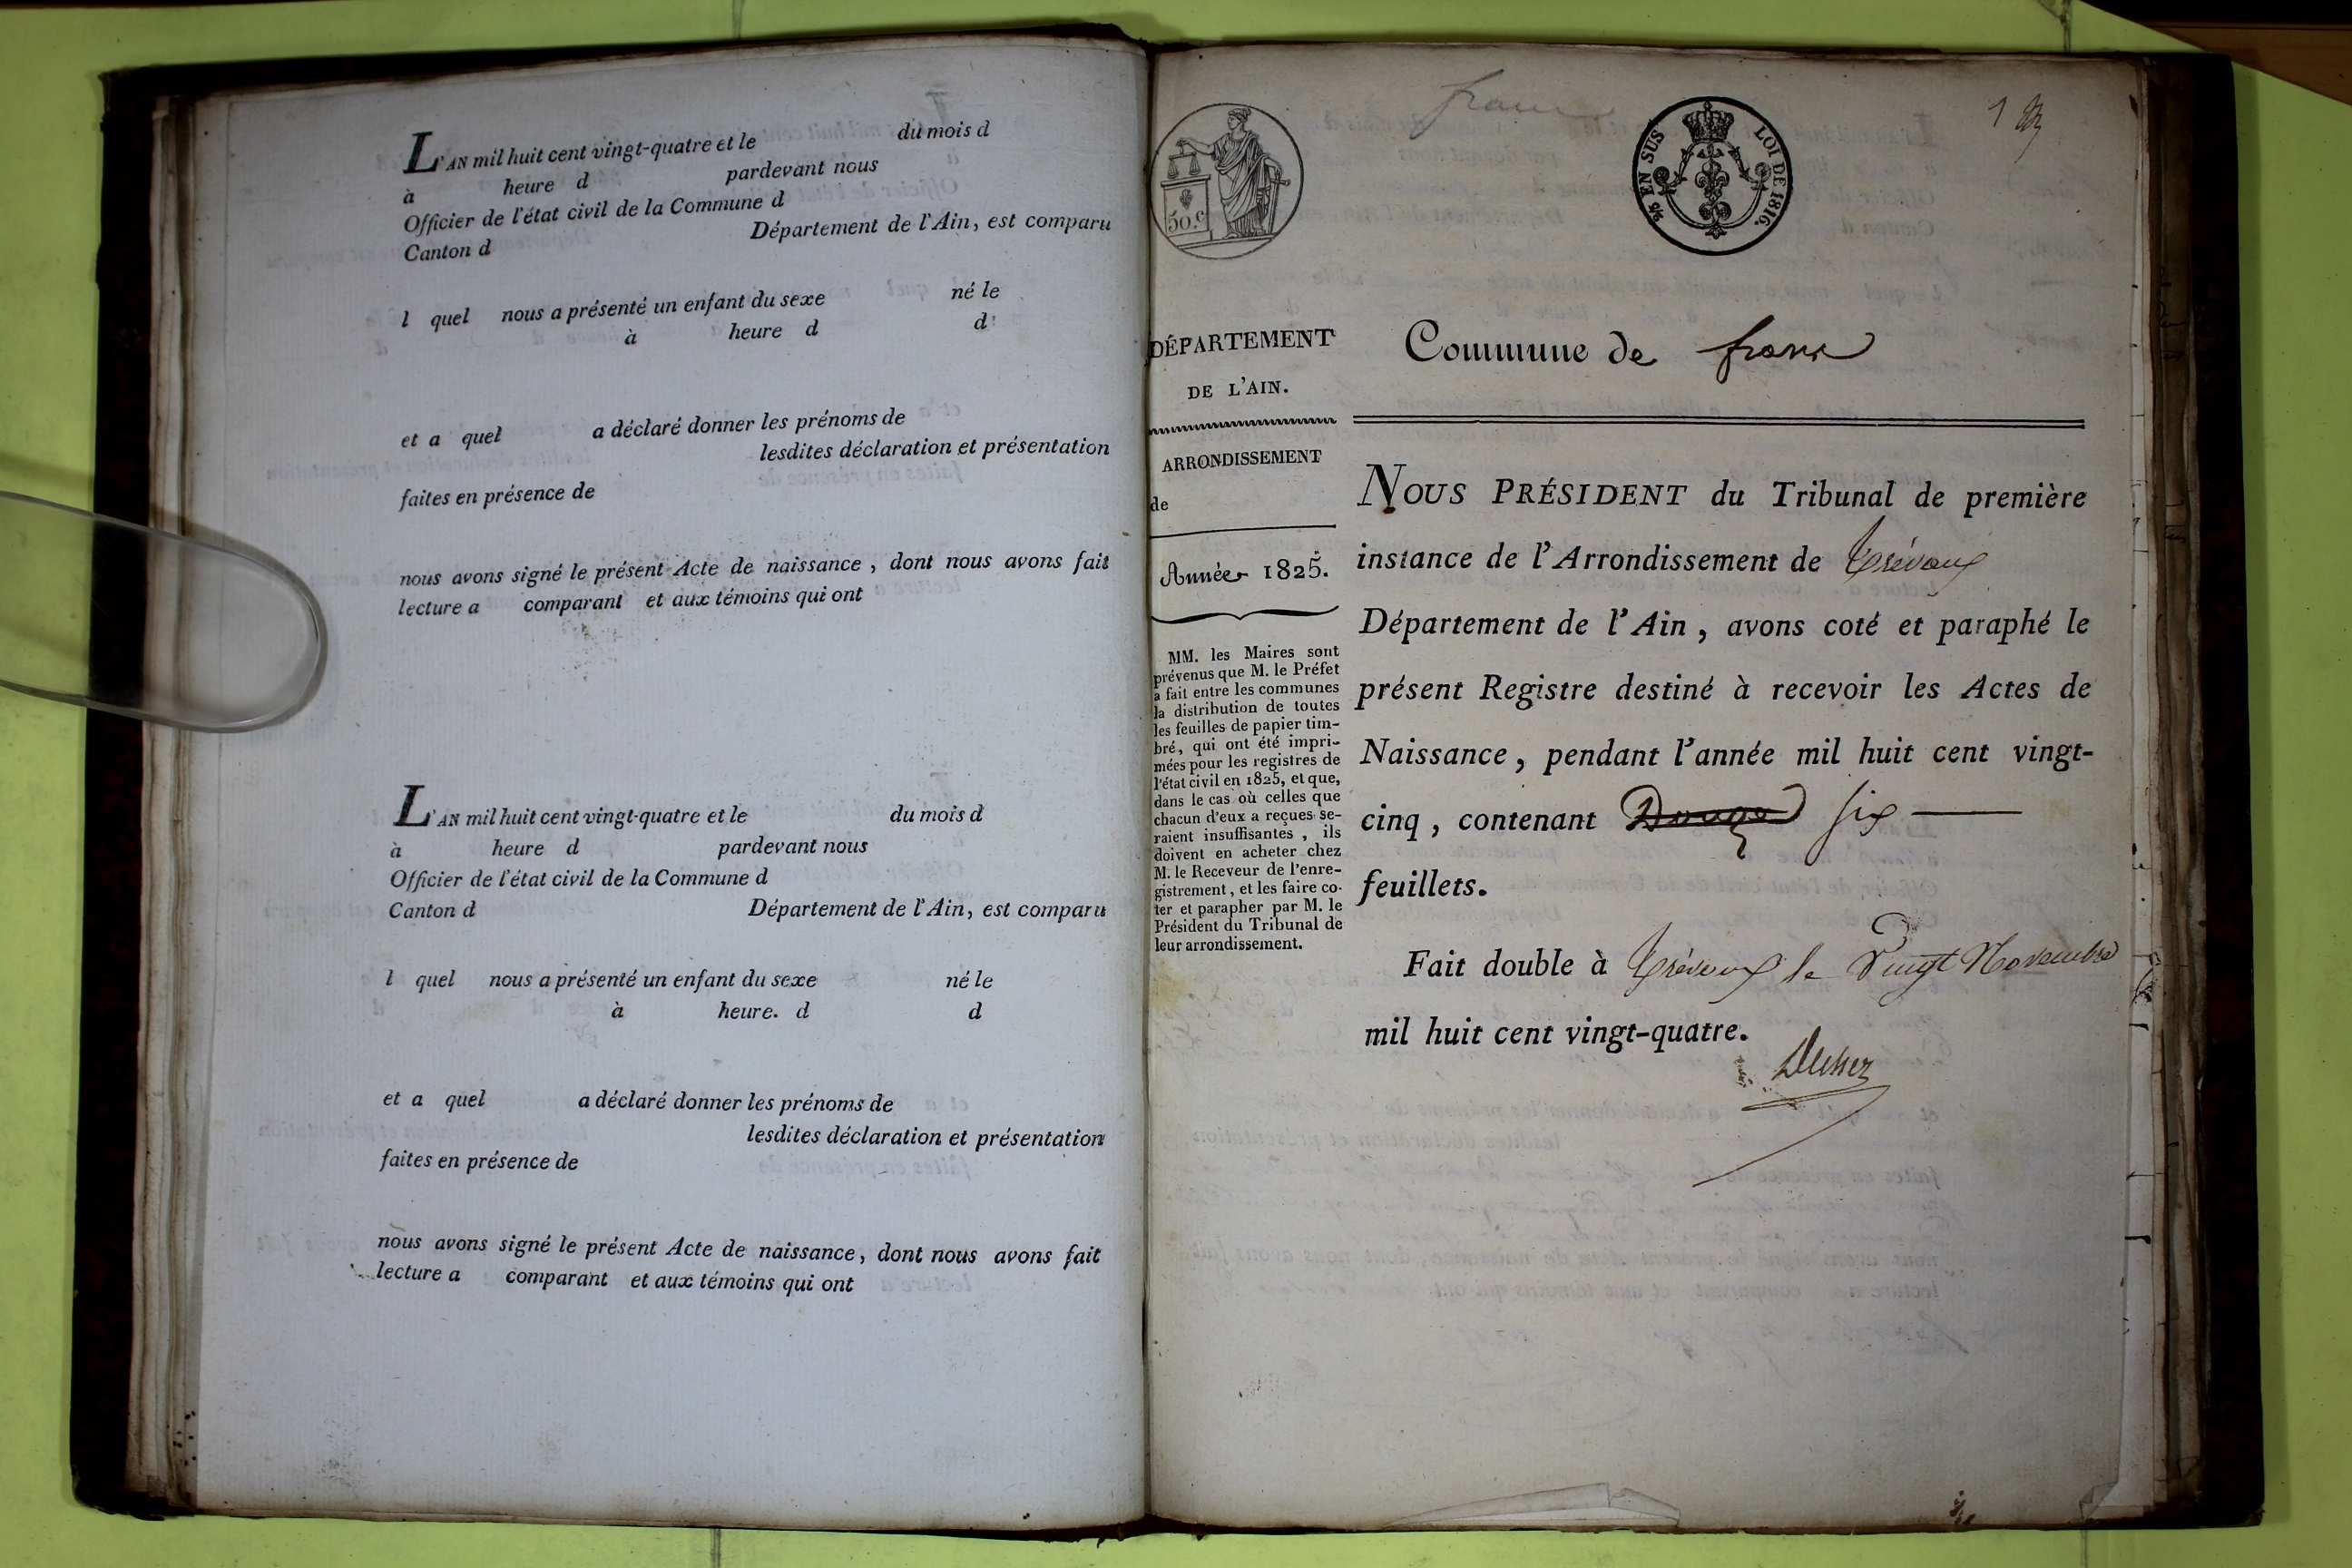 L'AN mil huit cent vingt-quatre et le du mois d
à heure d pardevant nous
Officier de l'état civil de la Commune d
Canton d Département de l'Ain, est comparu
l quel nous a présenté un enfant du sexe né le
à heure d d
et a quel a déclaré donner les prénoms de
lesdites déclaration et présentation
faites en présence de
nous avons signé le présent Acte de naissance, dont nous avons fait
lecture a comparant et aux témoins qui ont
L'AN mil huit cent vingt-quatre et le du mois d
à heure d pardevant nous
Officier de l'état civil de la Commune d
Canton d Département de l'Ain, est comparu
l quel nous a présenté un enfant du sexe né le
à heure. d d
et a quel a déclaré donner les prénoms de
lesdites déclaration et présentation
faites en présence de
nous avons signé le présent Acte de naissance, dont nous avons fait
lecture a comparant et aux témoins qui ont
50.c
EN SUS LOI DE 1816.
1
DÉPARTEMENT
DE L'AIN.
ARRONDISSEMENT
de
Année 1825.
MM. les Maires sont
prévenus que M. le Préfet
a fait entre les communes
la distribution de toutes
les feuilles de papier tim-
bré, qui ont été impri-
mées pour les registres de
l'état civil en 1825, et que,
dans le cas où celles que
chacun d'eux a reçues se-
raient insuffisantes, ils
doivent en acheter chez
M. le Receveur de l'enre-
gistrement, et les faire co-
ter et parapher par M. le
Président du Tribunal de
leur arrondissement.
Commune de frans
NOUS PRÉSIDENT du Tribunal de première
instance de l'Arrondissement de Trévoux
Département de l'Ain, avons coté et paraphé le
présent Registre destiné à recevoir les Actes de
Naissance, pendant l'année mil huit cent vingt-
cinq, contenant Douze six
feuillets.
Fait double à Trévoux le Vingt Novembre
mil huit cent vingt-quatre.